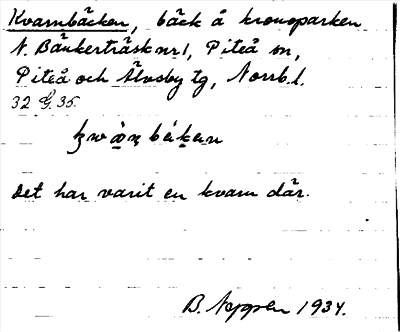 Kvarnbäcken, bäck å kronoparken
N. Bänkerträsk nr 1, Piteå sn,
Piteå och Älvsby tg, Norrb. l.
32 G. 35.
det har varit en kvarn där.
B. 1934.